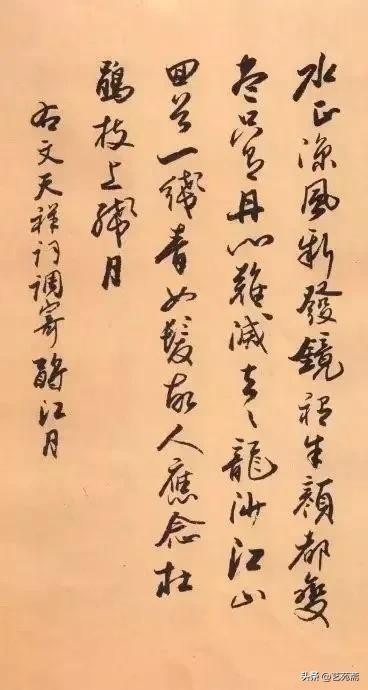 水正涼風新發鏡裡朱顏都變
盡只有丹心難滅去々龍沙江山
回首一綫青如髮故人應念杜
鵑枝上殘月
右文天祥詞調寄酹江月
头条 @艺苑斋